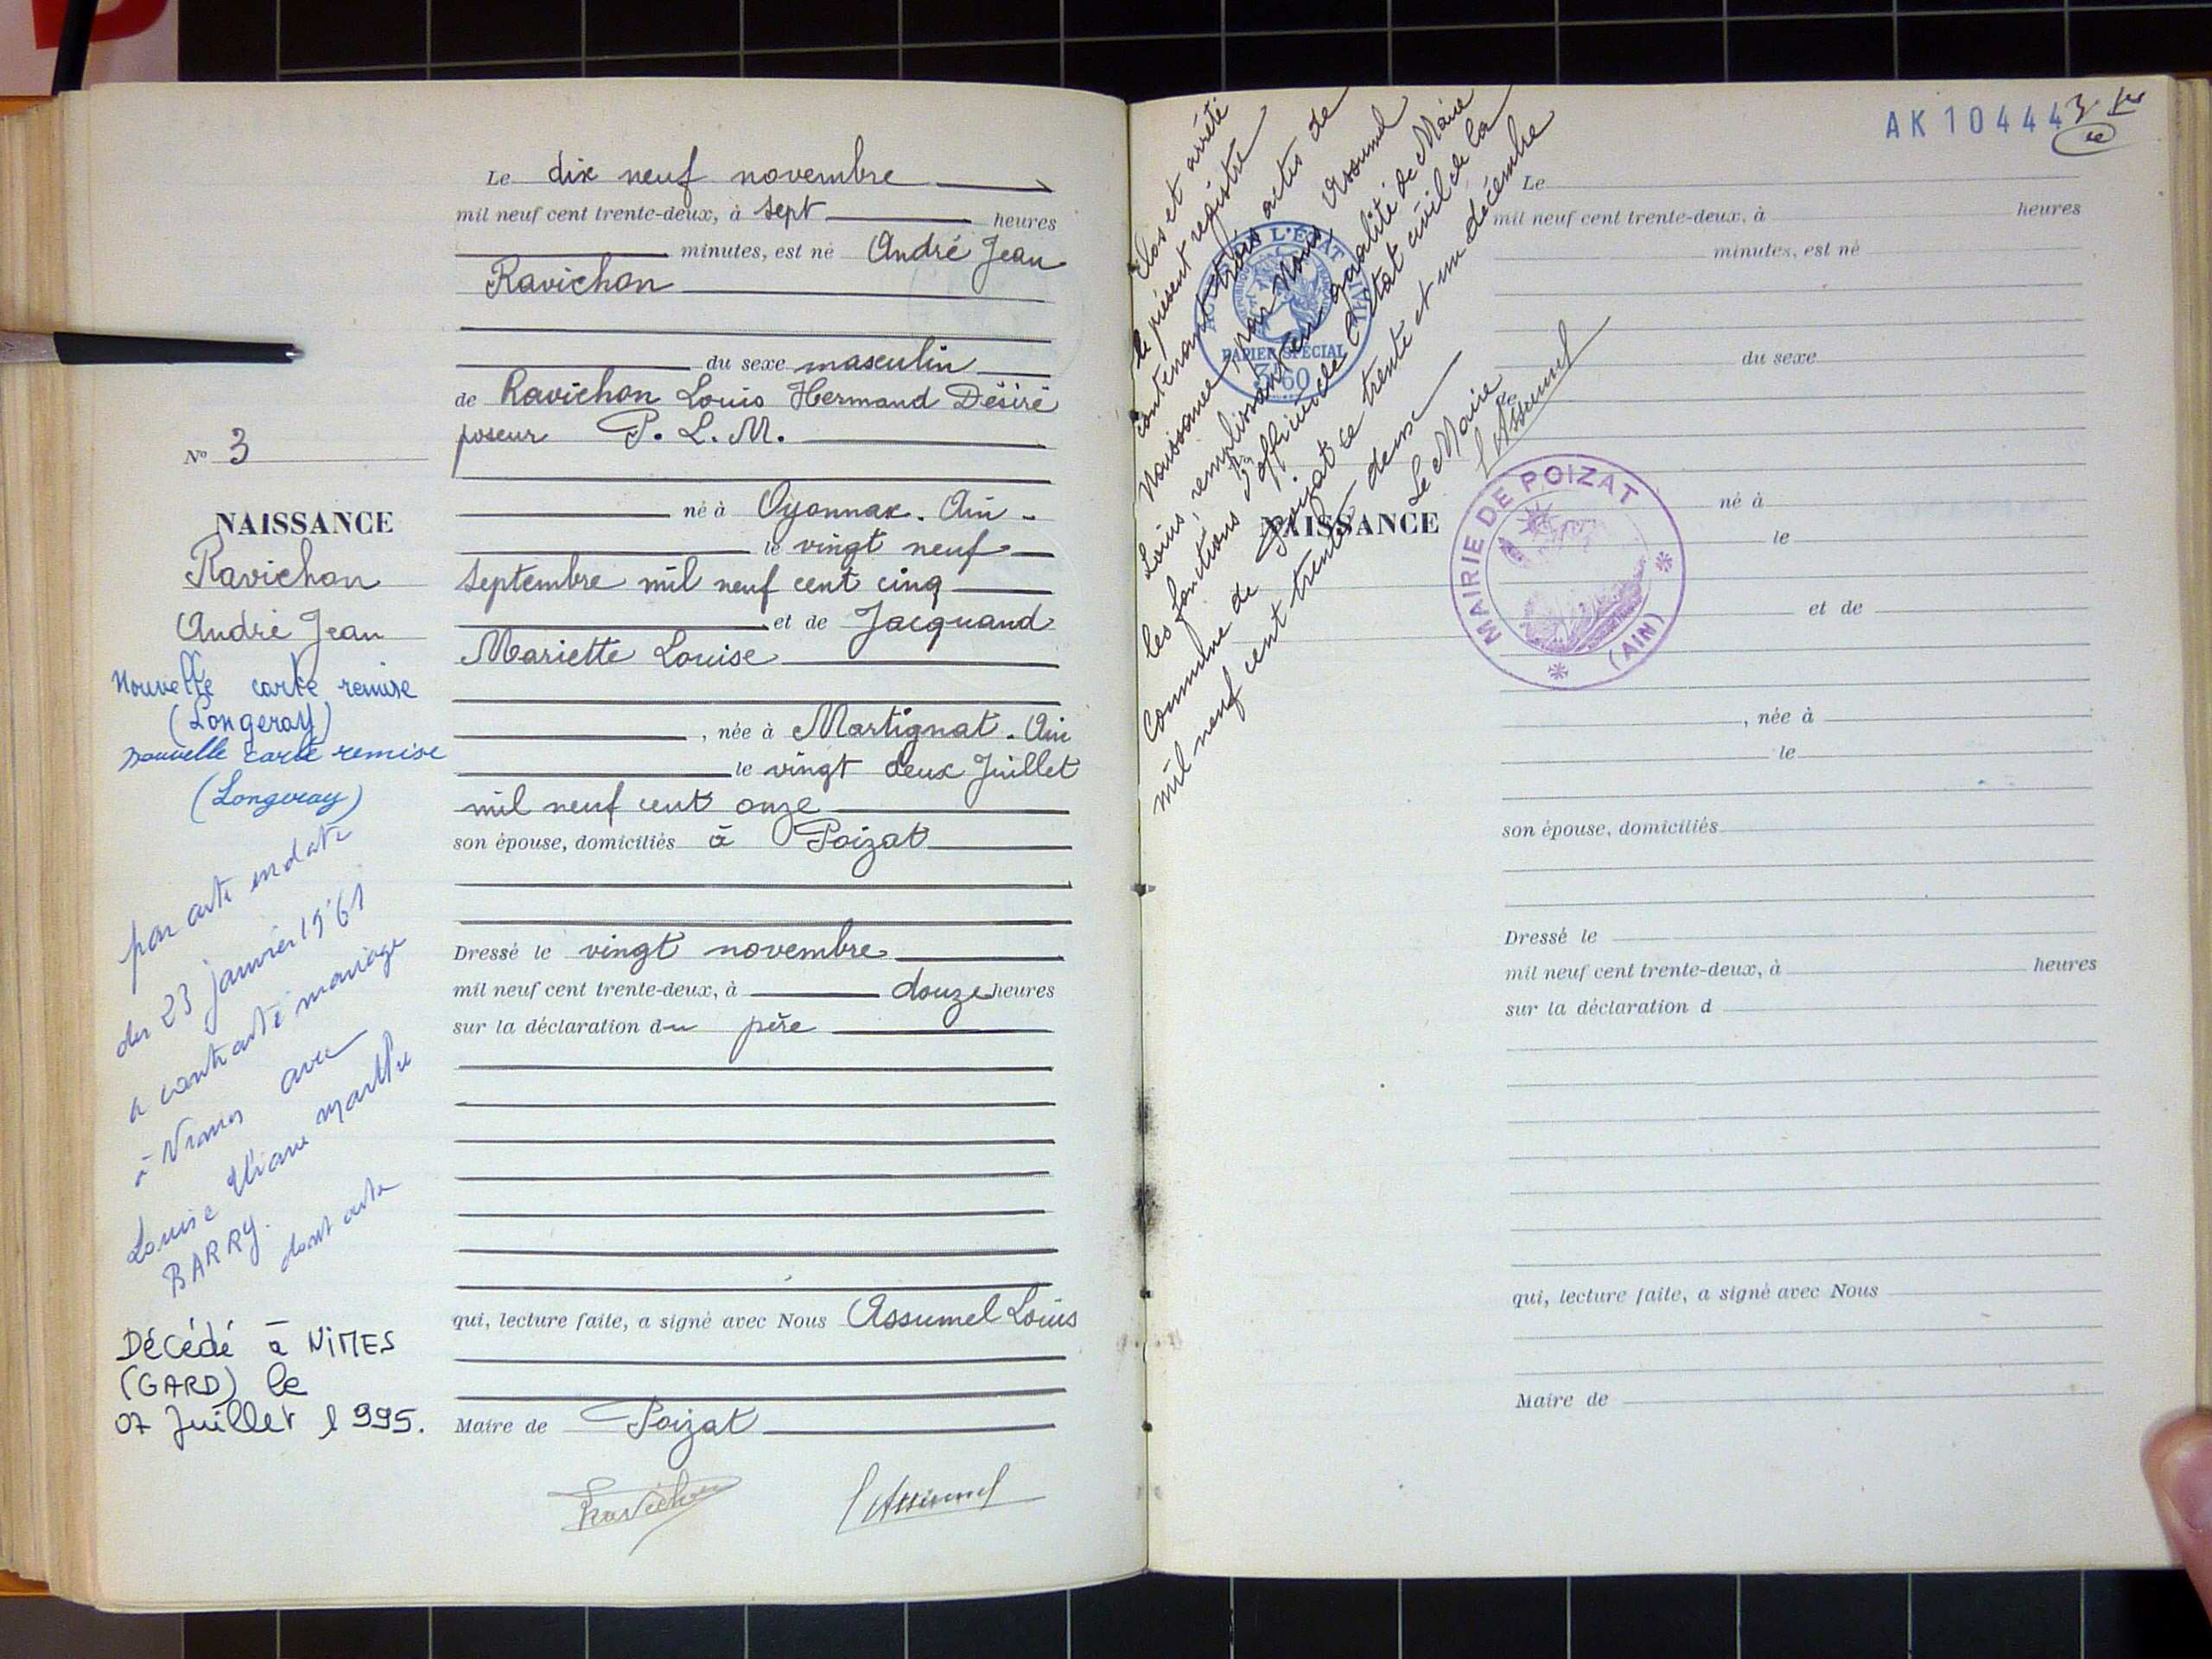 N° 3
NAISSANCE
Ravichon
André Jean
Nouvelle carte remise
(Longeray)
nouvelle carte remise
(Longeray)
par acte en date
du 23 janvier 1961
a contracté mariage
à Nîmes avec
Louise Eliane Marthe
BARRY.
dont acte
Décédé à NIMES
(GARD) le
07 Juillet 1995.
Le dix neuf novembre
mil neuf cent trente-deux, à sept heures
minutes, est né André Jean
Ravichon
du sexe masculin
de Ravichon Louis Hermand Désiré
poseur P. L. M.
né à Oyonnax. Ain.
le vingt neuf
Septembre mil neuf cent cinq
et de Jacquand
Mariette Louise
, née à Martignat. Ain
le vingt deux Juillet
mil neuf cent onze
son épouse, domiciliés à Poizat
Dressé le vingt novembre
mil neuf cent trente-deux, à douze heures
sur la déclaration du père
qui, lecture faite, a signé avec Nous Assumel Louis
Maire de Poizat
Ravichon
L Assumel
Clos et arrêté
le présent registre
contenant trois actes de
Naissance, par Nous, Assumel
Louis, remplissant en qualité de Maire
les fonctions d'officier de l'état civil de la
commune de Poizat ce trente et un décembre
mil neuf cent trente deux
Le Maire
L Assumel
L'ETAT
PAPIER SPÉCIAL
3F60
MAIRIE DE POIZAT
(AIN)
AK 10444
NAISSANCE
Le
mil neuf cent trente-deux, à heures
minutes, est né
du sexe
de
né à
le
et de
, née à
le
son épouse, domiciliés
Dressé le
mil neuf cent trente-deux, à heures
sur la déclaration d
qui, lecture faite, a signé avec Nous
Maire de